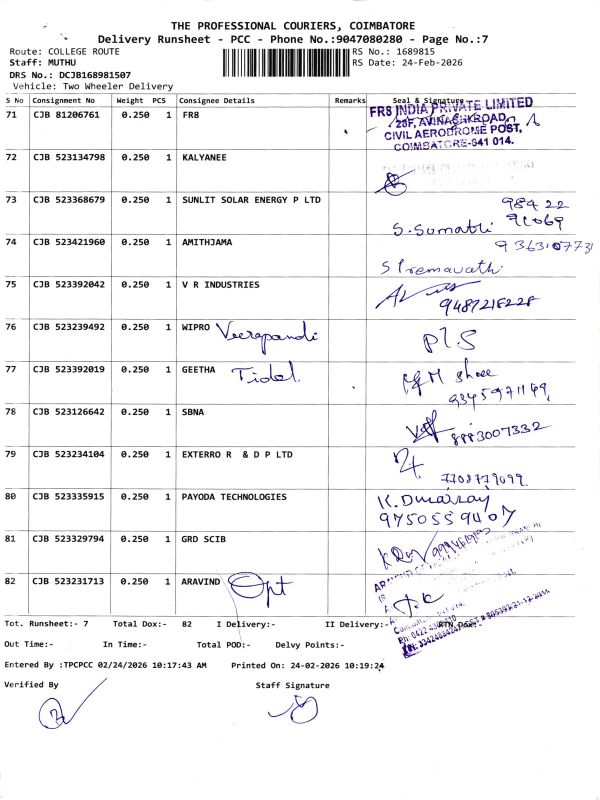 THE PROFESSIONAL COURIERS, COIMBATORE
Delivery Runsheet - PCC - Phone No.:9047080280 - Page No.:7
Route: COLLEGE ROUTE RS No.: 1689815
Staff: MUTHU RS Date: 24-Feb-2026
DRS No.: DCJB168981507
Vehicle: Two Wheeler Delivery
S No Consignment No Weight PCS Consignee Details Remarks Seal & Signature
71 CJB 81206761 0.250 1 FR8
FR8 INDIA PRIVATE LIMITED
28F, AVINASHI ROAD,
CIVIL AERODROME POST,
COIMBATORE-641 014.
72 CJB 523134798 0.250 1 KALYANEE
73 CJB 523368679 0.250 1 SUNLIT SOLAR ENERGY P LTD
98422
91069
S. Sumathi
74 CJB 523421960 0.250 1 AMITHJAMA
9363107731
S Premavathi
75 CJB 523392042 0.250 1 V R INDUSTRIES
9487218228
76 CJB 523239492 0.250 1 WIPRO Veerapandi
77 CJB 523392019 0.250 1 GEETHA Tidel
M shree
9345971149
78 CJB 523126642 0.250 1 SBNA
8883007332
79 CJB 523234104 0.250 1 EXTERRO R & D P LTD
7708779099
80 CJB 523335915 0.250 1 PAYODA TECHNOLOGIES
K. Durairay
9750559407
81 CJB 523329794 0.250 1 GRD SCIB
82 CJB 523231713 0.250 1 ARAVIND Opt
Tot. Runsheet:- 7 Total Dox:- 82 I Delivery:- II Delivery:- RTN Dox:-
Out Time:- In Time:- Total POD:- Delvy Points:-
Entered By :TPCPCC 02/24/2026 10:17:43 AM Printed On: 24-02-2026 10:19:24
Verified By Staff Signature